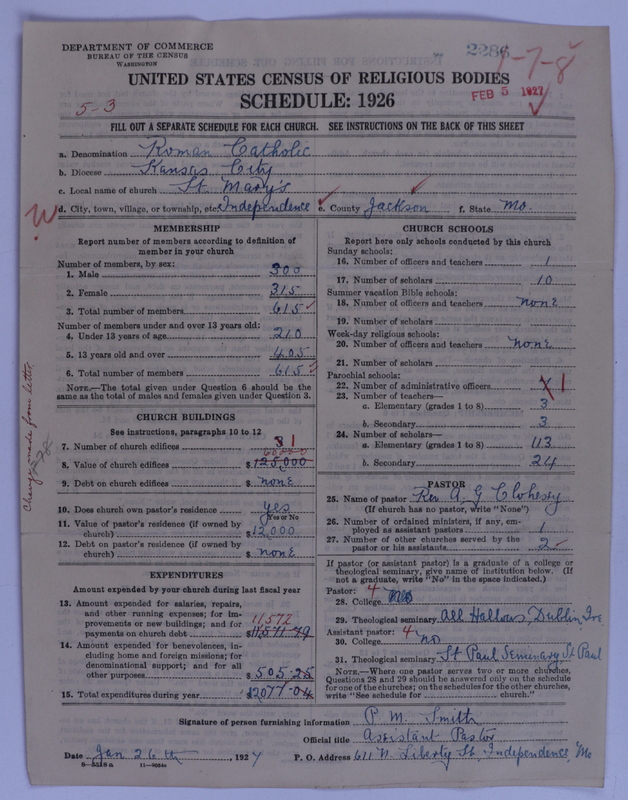 DEPARTMENT OF COMMERCE
BUREAU OF THE CENSUS
WASHINGTON
2286
1-7-8
FEB 5 1927
UNITED STATES CENSUS OF RELIGIOUS BODIES
SCHEDULE: 1926
5-3
FILL OUT A SEPARATE SCHEDULE FOR EACH CHURCH. SEE INSTRUCTIONS ON THE BACK OF THIS SHEET
a. Denomination Roman Catholic
b. Diocese Kansas City
c. Local name of church St. Mary's
d. City, town, village, or township, etc. Independence e. County Jackson f. State Mo.
MEMBERSHIP
Report number of members according to definition of member in your church
Number of members, by sex:
1. Male 300
2. Female 315
3. Total number of members 615
Number of members under and over 13 years old:
4. Under 13 years of age 210
5. 13 years old and over 405
6. Total number of members 615
NOTE.—The total given under Question 6 should be the
same as the total of males and females given under Question 3.
CHURCH BUILDINGS
See instructions, paragraphs 10 to 12
7. Number of church edifices 3 1
8. Value of church edifices $ 125,000
9. Debt on church edifices $ none
10. Does church own pastor's residence? yes
Yes or No
11. Value of pastor's residence (if owned by
church) $ 12,000
12. Debt on pastor's residence (if owned by
church) $ none
Change made from letter
EXPENDITURES
Amount expended by your church during last fiscal year
13. Amount expended for salaries, repairs,
and other running expenses; for im-
provements or new buildings; and for
payments on church debt $ 11571-79
11,572
14. Amount expended for benevolences, in-
cluding home and foreign missions; for
denominational support; and for all
other purposes $ 505-25
15. Total expenditures during year $ 12077-04
CHURCH SCHOOLS
Report here only schools conducted by this church
Sunday schools:
16. Number of officers and teachers 1
17. Number of scholars 10
Summer vacation Bible schools:
18. Number of officers and teachers none
19. Number of scholars
Week-day religious schools:
20. Number of officers and teachers none
21. Number of scholars
Parochial schools:
22. Number of administrative officers 1
23. Number of teachers—
a. Elementary (grades 1 to 8) 3
b. Secondary 3
24. Number of scholars—
a. Elementary (grades 1 to 8) 113
b. Secondary 24
PASTOR
25. Name of pastor Rev. A. G. Clohesy
(If church has no pastor, write "None")
26. Number of ordained ministers, if any, em-
ployed as assistant pastors 1
27. Number of other churches served by the
pastor or his assistants 2
If pastor (or assistant pastor) is a graduate of a college or
theological seminary, give name of institution below. (If
not a graduate, write "No" in the space indicated.)
Pastor: 4
28. College
29. Theological seminary All Hallows, Dublin, Ire.
Assistant pastor: 4
30. College no
31. Theological seminary St Paul Seminary St Paul
NOTE.—Where one pastor serves two or more churches,
Questions 28 and 29 should be answered only on the schedule
for one of the churches; on the schedules for the other churches,
write "See schedule for church."
Signature of person furnishing information P. M. Smith
Official title Assistant Pastor
Date Jan 26th, 1927 P. O. Address 611 N. Liberty St, Independence, Mo